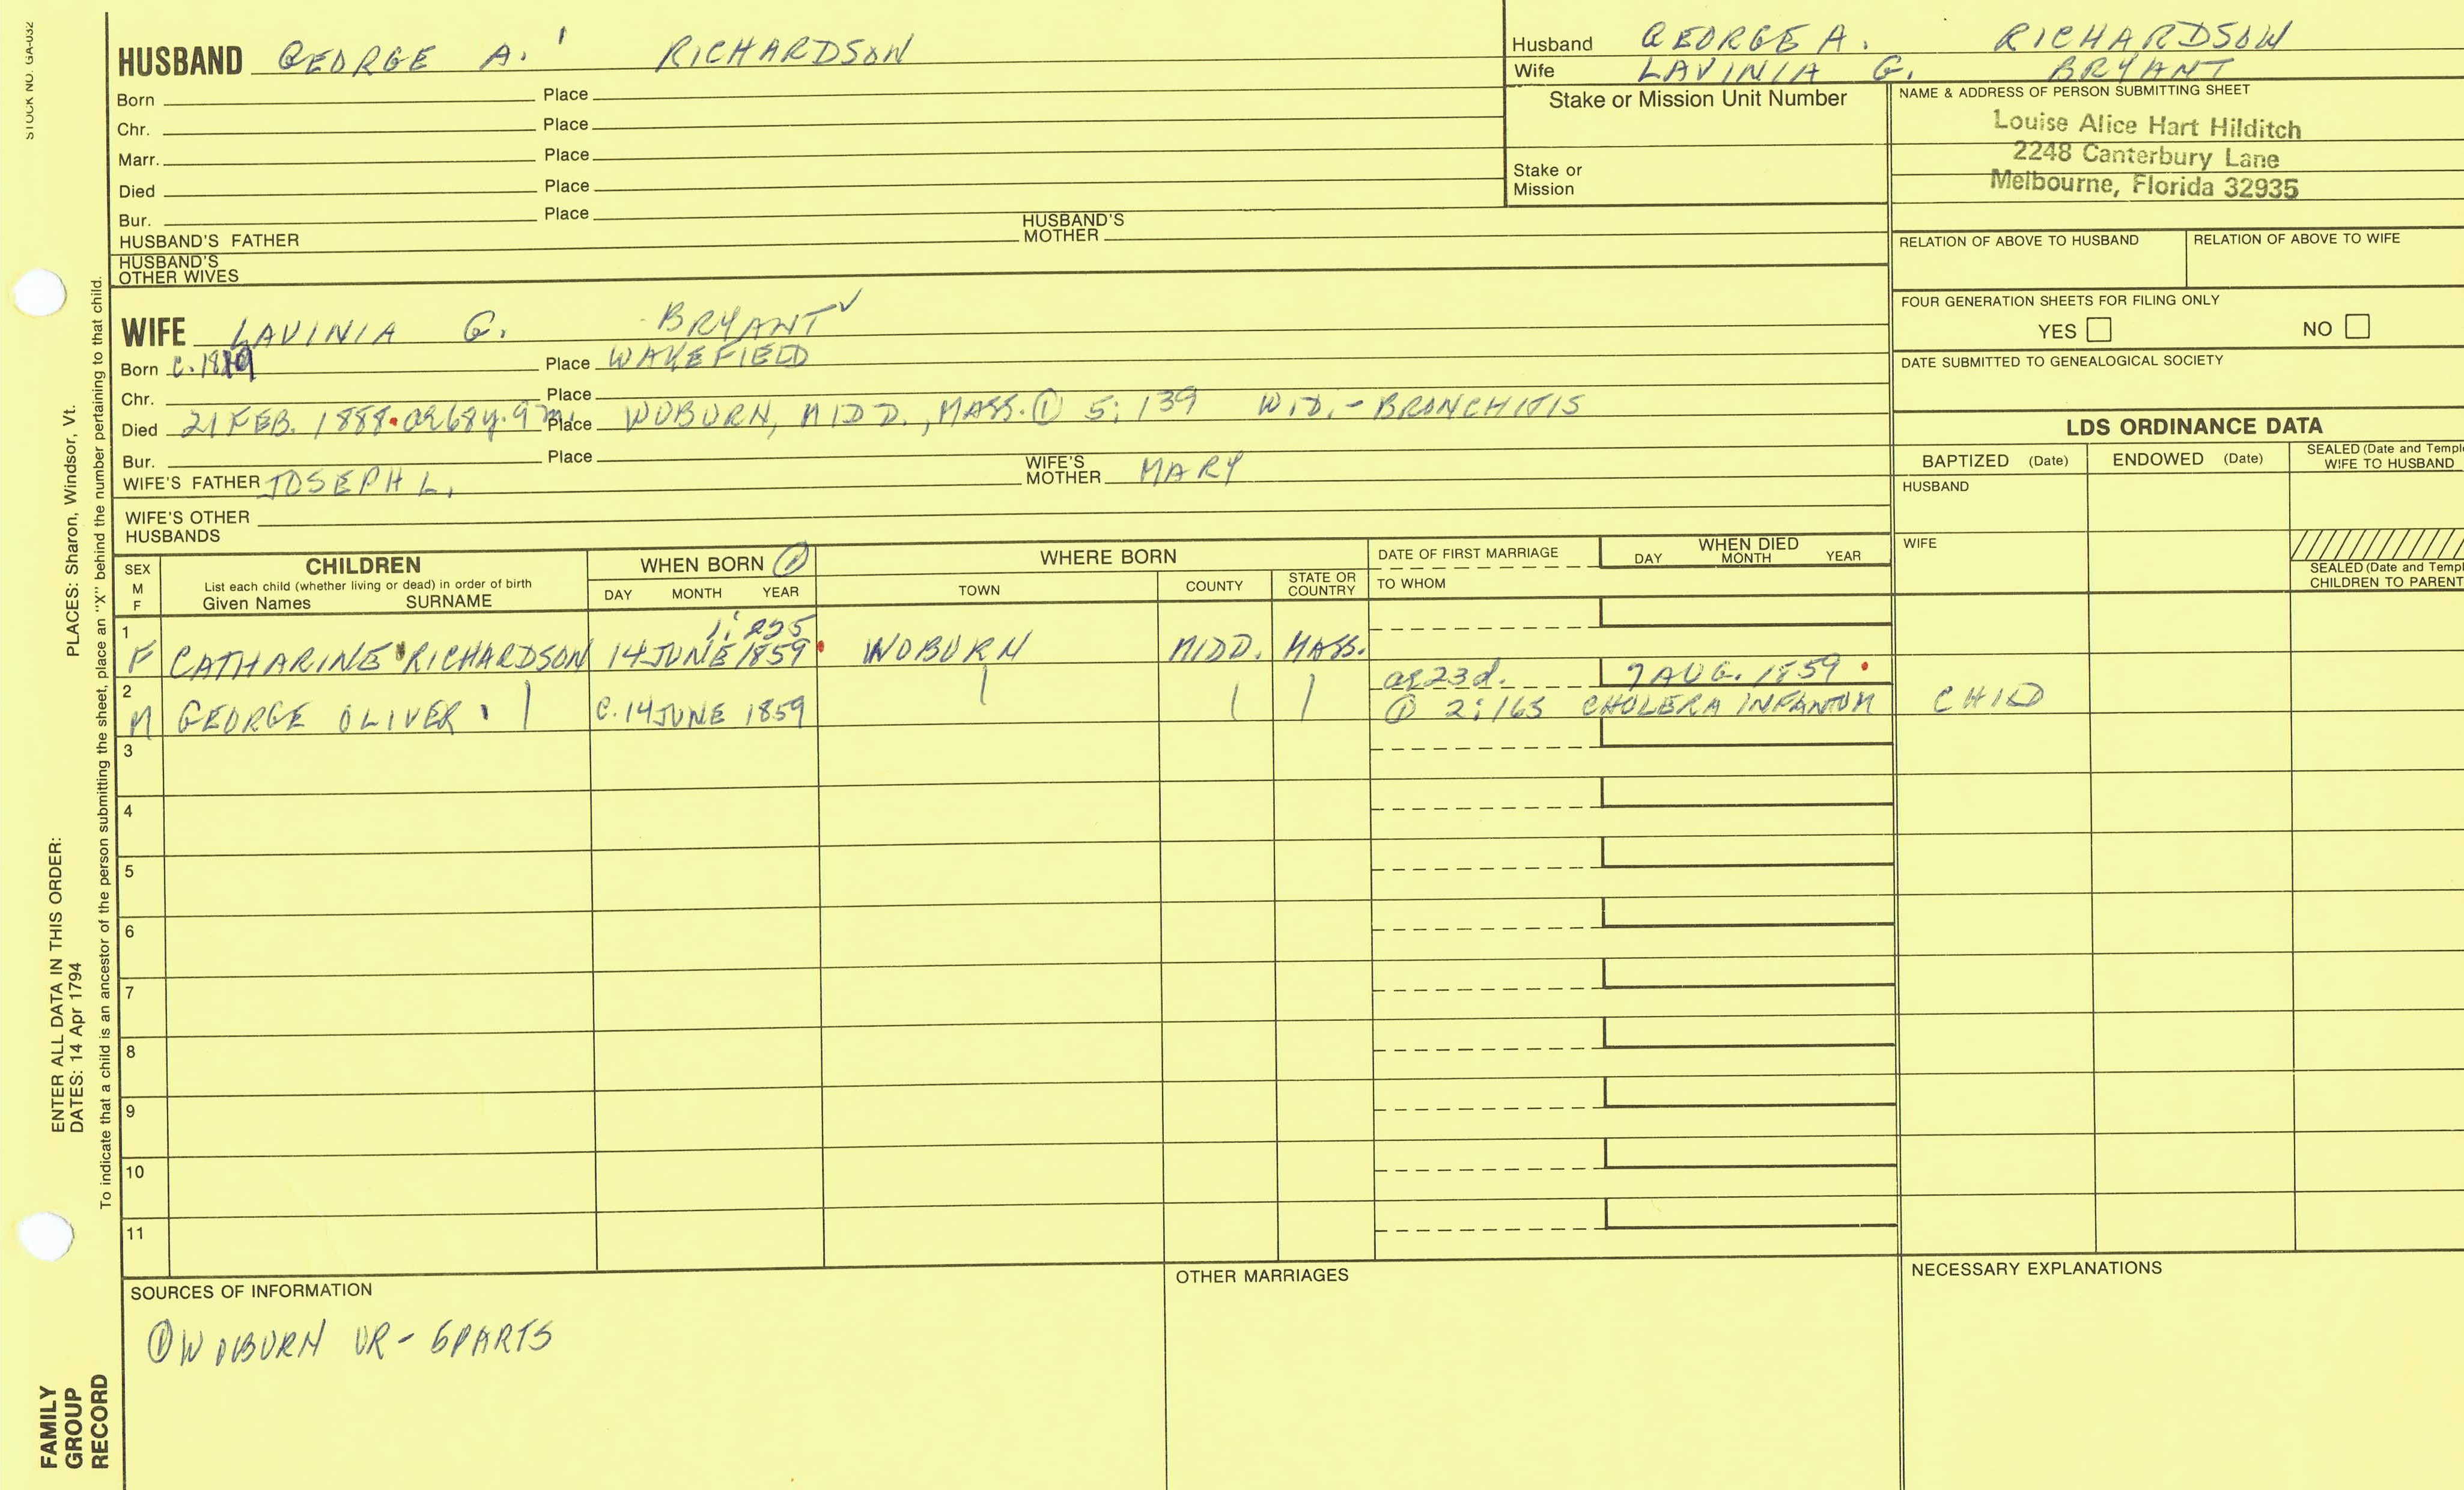 STOCK NO. GA-032
HUSBAND GEORGE A. RICHARDSON
Born Place
Chr. Place
Marr. Place
Died Place
Bur. Place
HUSBAND'S FATHER HUSBAND'S MOTHER
HUSBAND'S OTHER WIVES
Husband GEORGE A. RICHARDSON
Wife LAVINIA G. BRYANT
Stake or Mission Unit Number
Stake or Mission
NAME & ADDRESS OF PERSON SUBMITTING SHEET
Louise Alice Hart Hilditch
2248 Canterbury Lane
Melbourne, Florida 32935
RELATION OF ABOVE TO HUSBAND RELATION OF ABOVE TO WIFE
FOUR GENERATION SHEETS FOR FILING ONLY
YES NO
DATE SUBMITTED TO GENEALOGICAL SOCIETY
WIFE LAVINIA G. BRYANT ✓
Born C. 1819 Place WAKEFIELD
Chr. Place
Died 21 FEB. 1888 • ae 68y. 9m. Place WOBURN, MIDD., MASS. ① 5:139 WID. - BRONCHITIS
Bur. Place
WIFE'S FATHER JOSEPH L. WIFE'S MOTHER MARY
WIFE'S OTHER HUSBANDS
LDS ORDINANCE DATA
BAPTIZED (Date) ENDOWED (Date) SEALED (Date and Templ WIFE TO HUSBAND
HUSBAND
WIFE
SEALED (Date and Templ CHILDREN TO PARENT
SEX M F
CHILDREN
List each child (whether living or dead) in order of birth
Given Names SURNAME
WHEN BORN ①
DAY MONTH YEAR
WHERE BORN
TOWN COUNTY STATE OR COUNTRY
DATE OF FIRST MARRIAGE
TO WHOM
WHEN DIED
DAY MONTH YEAR
1 1:225
F CATHARINE RICHARDSON 14 JUNE 1859 • WOBURN MIDD. MASS.
2 ae 23d. 7 AUG. 1859 •
M GEORGE OLIVER C. 14 JUNE 1859 ① 2:165 CHOLERA INFANTUM CHILD
3
4
5
6
7
8
9
10
11
SOURCES OF INFORMATION
① WOBURN VR - 6 PARTS
OTHER MARRIAGES
NECESSARY EXPLANATIONS
ENTER ALL DATA IN THIS ORDER:
DATES: 14 Apr 1794 PLACES: Sharon, Windsor, Vt.
To indicate that a child is an ancestor of the person submitting the sheet, place an "X" behind the number pertaining to that child.
FAMILY
GROUP
RECORD